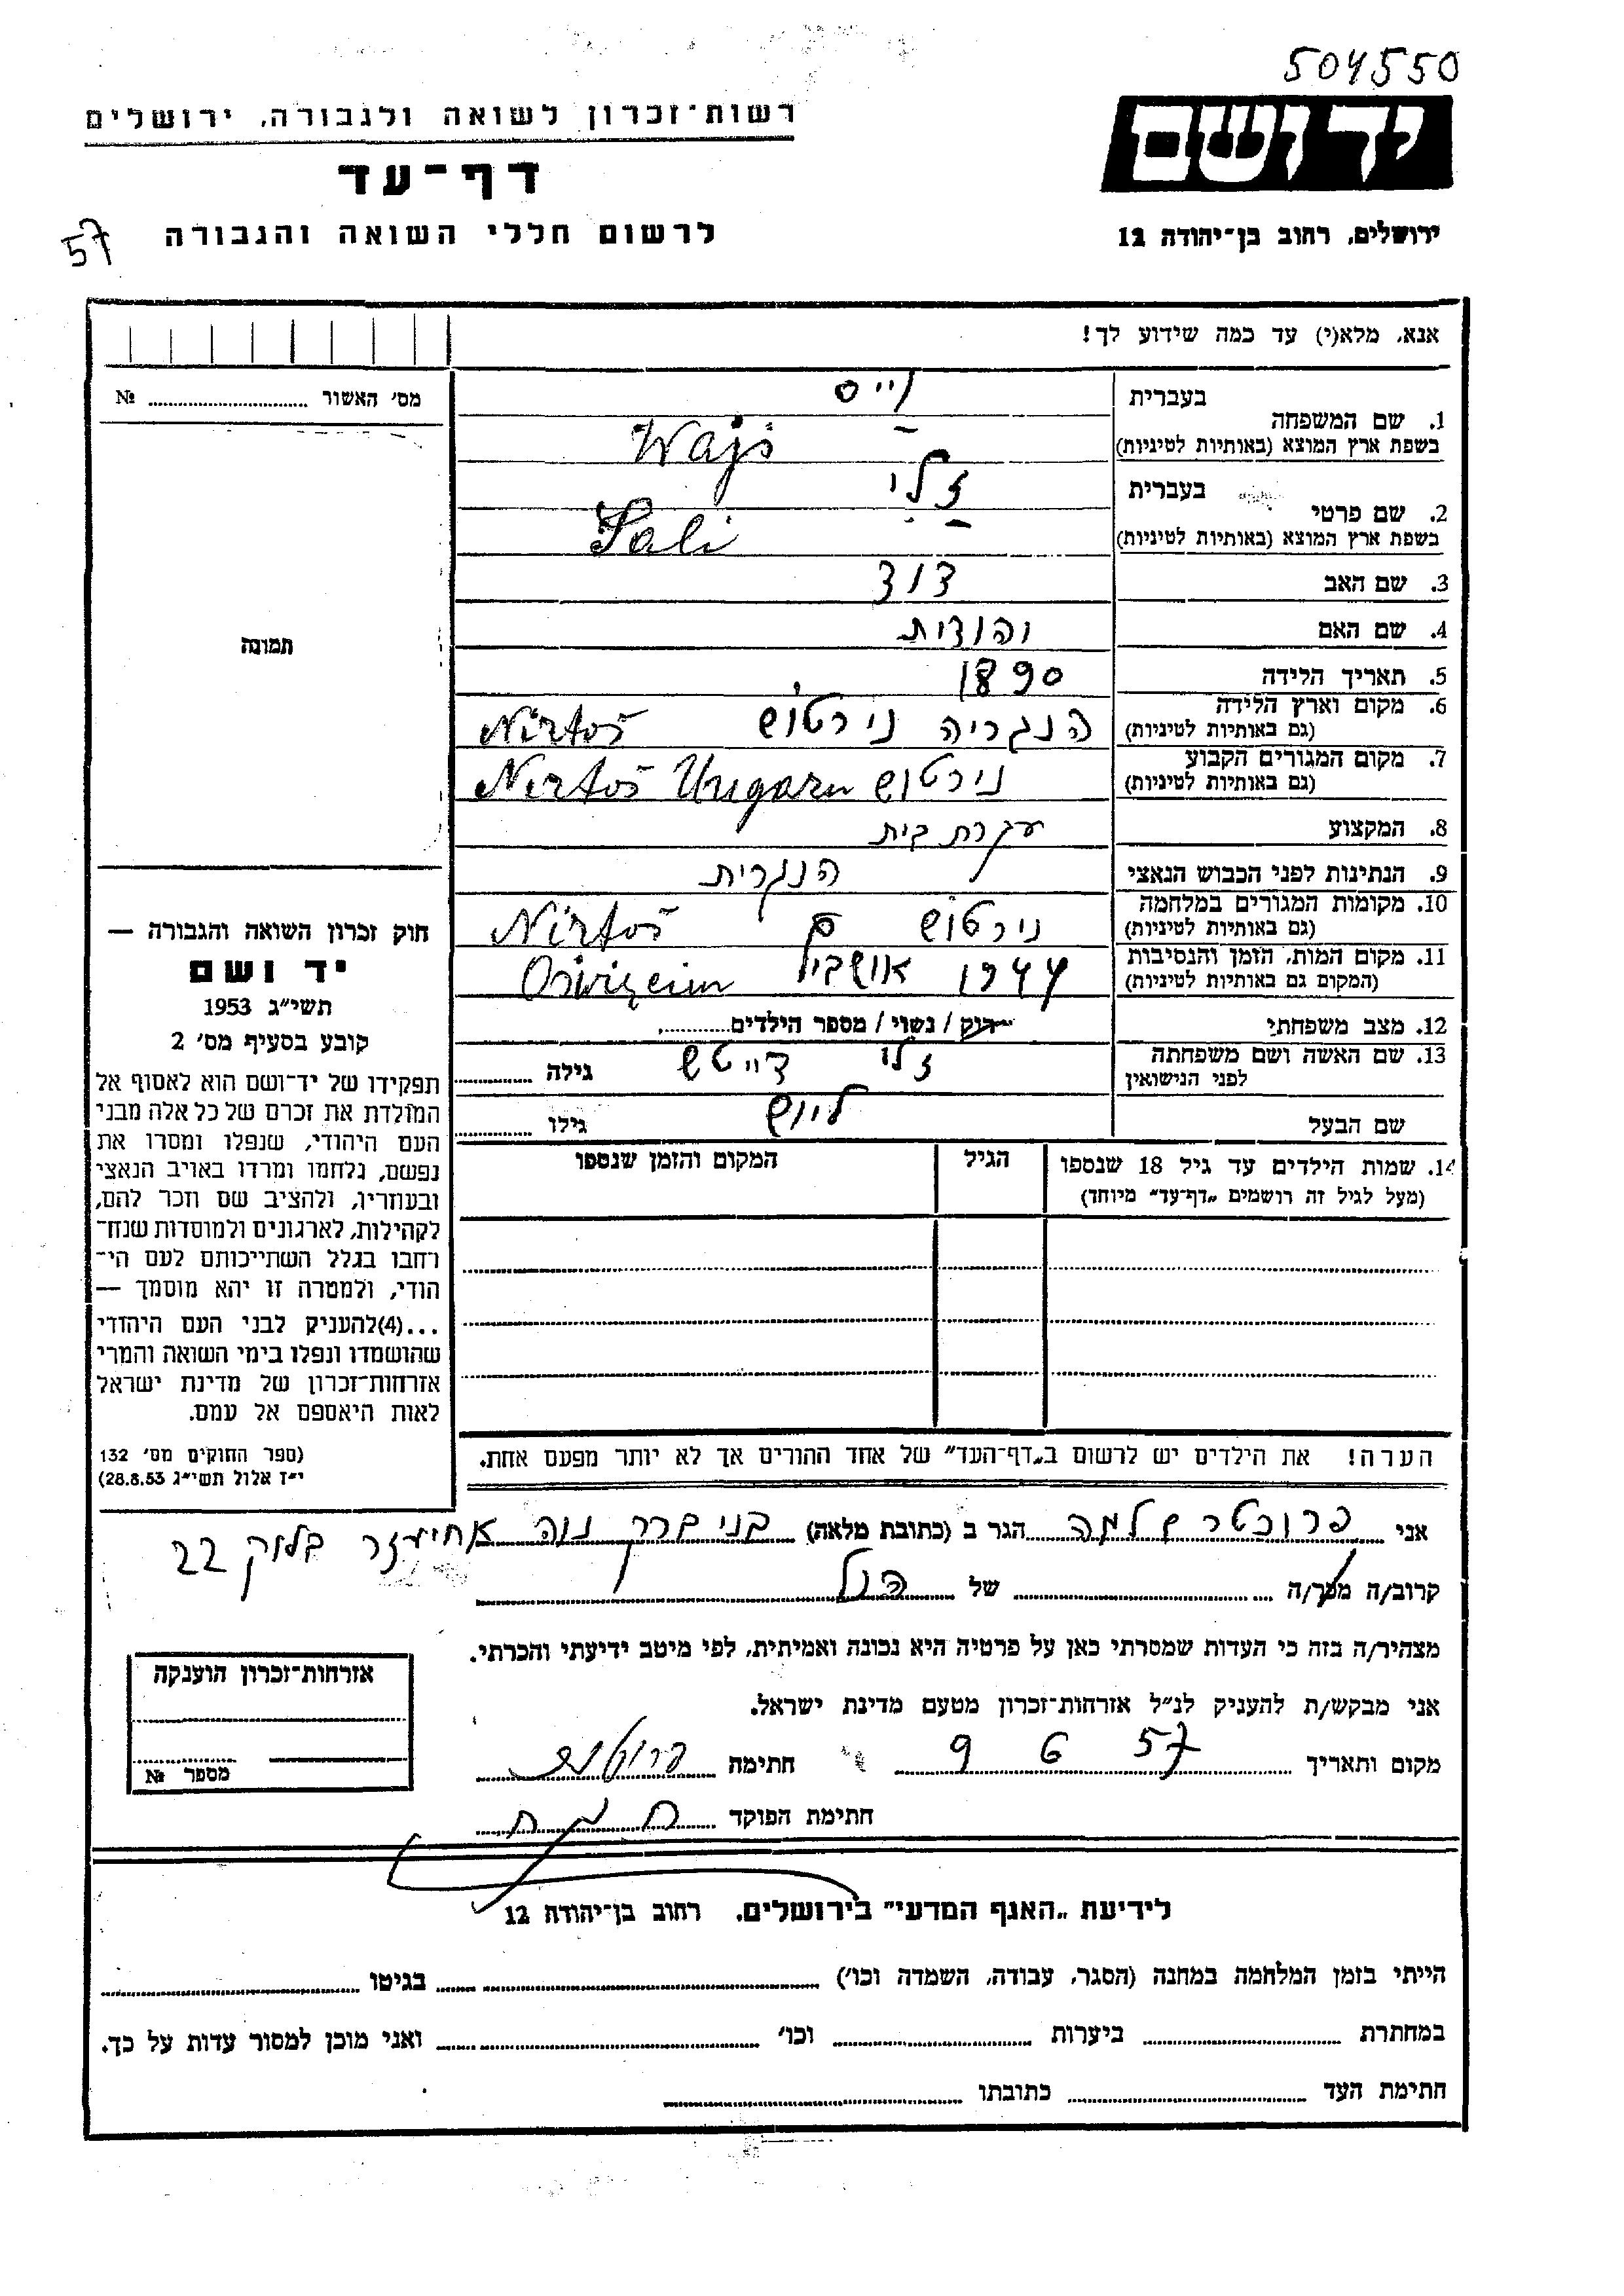 504550
יד ושם
רשות־זכרון לשואה ולגבורה, ירושלים
דף־עד
לרשום חללי השואה והגבורה
57
ירושלים, רחוב בן־יהודה 12
אנא, מלא(י) עד כמה שידוע לך!
מס׳ האשור № 
1. שם המשפחה
בעברית
וייס
בשפת ארץ המוצא (באותיות לטיניות)
Wajs
2. שם פרטי
בעברית
זלי
בשפת ארץ המוצא (באותיות לטיניות)
Sali
3. שם האב
דוד
4. שם האם
יהודית
5. תאריך הלידה
1890
6. מקום וארץ הלידה
(גם באותיות לטיניות)
הנגריה נירטוש Nirtoš
7. מקום המגורים הקבוע
(גם באותיות לטיניות)
נירטוש Nirtoš Ungarn
8. המקצוע
עקרת בית
9. הנתינות לפני הכבוש הנאצי
הנגרית
10. מקומות המגורים במלחמה
(גם באותיות לטיניות)
נירטוש Nirtoš
11. מקום המות, הזמן והנסיבות
(המקום גם באותיות לטיניות)
1944
12. מצב משפחתי
רוק / נשוי / מספר הילדים
13. שם האשה ושם משפחתה
לפני הנישואין
זלי דייטש
גילה
שם הבעל
ליוש
גילו
14. שמות הילדים עד גיל 18 שנספו
(מעל לגיל זה רושמים „דף־עד״ מיוחד)
הגיל
המקום והזמן שנספו
הערה! את הילדים יש לרשום ב„דף־העד״ של אחד ההורים אך לא יותר מפעם אחת.
תמונה
חוק זכרון השואה והגבורה —
יד ושם
תשי״ג 1953
קובע בסעיף מס׳ 2
תפקידו של יד־ושם הוא לאסוף אל
המולדת את זכרם של כל אלה מבני
העם היהודי, שנפלו ומסרו את
נפשם, נלחמו ומרדו באויב הנאצי
ובעוזריו, ולהציב שם וזכר להם,
לקהילות, לארגונים ולמוסדות שנח־
רחבו בגלל השתייכותם לעם הי־
הודי, ולמטרה זו יהא מוסמך —
...(4)להעניק לבני העם היהודי
שהושמדו ונפלו בימי השואה והמרי
אזרחות־זכרון של מדינת ישראל
לאות היאספם אל עמם.
(ספר החוקים מס׳ 132
י״ז אלול תשי״ג 28.8.53)
אני פרוכטר שלמה הגר ב (כתובת מלאה) בני ברק נוה אחיעזר בלוק 22
קרוב/ה מכר/ה של הנ״ל
מצהיר/ה בזה כי העדות שמסרתי כאן על פרטיה היא נכונה ואמיתית, לפי מיטב ידיעתי והכרתי.
אני מבקש/ת להעניק לנ״ל אזרחות־זכרון מטעם מדינת ישראל.
מקום ותאריך 9 6 57 חתימה
חתימת הפוקד
אזרחות־זכרון הוענקה
מספר №
לידיעת „האגף המדעי״ בירושלים, רחוב בן־יהודה 12
הייתי בזמן המלחמה במחנה (הסגר, עבודה, השמדה וכו׳) בגיטו
במחתרת ביערות וכו׳ ואני מוכן למסור עדות על כך.
חתימת העד כתובתו